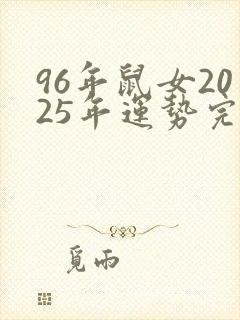 96年鼠女20
25年運勢完
覓雨